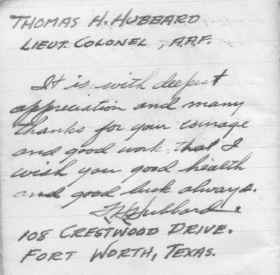 THOMAS H. HUBBARD
LIEUT. COLONEL, A.A.F.
It is with deepest
appreciation and many
thanks for your courage
and good work that I
wish you good health
and good luck always.
T H Hubbard.
108 CRESTWOOD DRIVE.
FORT WORTH, TEXAS.